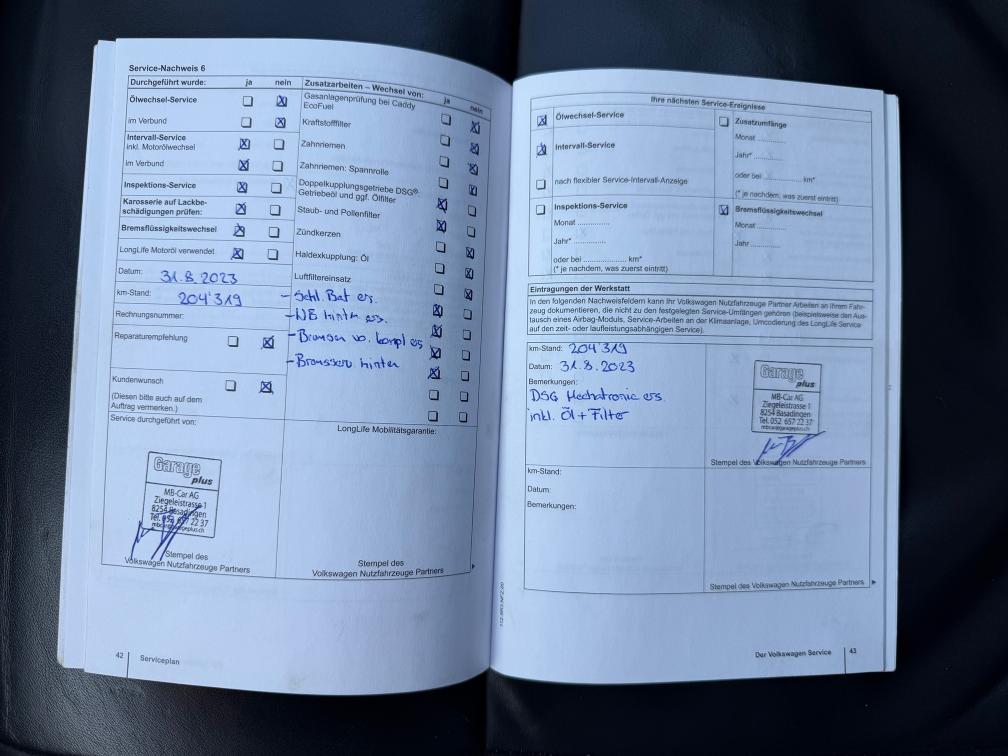 Service-Nachweis 6
Durchgeführt wurde: ja nein
Ölwechsel-Service
im Verbund
Intervall-Service
inkl. Motorölwechsel
im Verbund
Inspektions-Service
Karosserie auf Lackbe-
schädigungen prüfen:
Bremsflüssigkeitswechsel
LongLife Motoröl verwendet
Datum: 31.8.2023
km-Stand: 204'319
Rechnungsnummer:
Reparaturempfehlung
Kundenwunsch
(Diesen bitte auch auf dem
Auftrag vermerken.)
Service durchgeführt von:
Garage
plus
MB-Car AG
Ziegeleistrasse 1
8254 Basadingen
Tel. 052 657 22 37
mbcar@garageplus.ch
Stempel des
Volkswagen Nutzfahrzeuge Partners
Zusatzarbeiten – Wechsel von: ja nein
Gasanlagenprüfung bei Caddy
EcoFuel
Kraftstofffilter
Zahnriemen
Zahnriemen: Spannrolle
Doppelkupplungsgetriebe DSG®
Getriebeöl und ggf. Ölfilter
Staub- und Pollenfilter
Zündkerzen
Haldexkupplung: Öl
Luftfiltereinsatz
- Schl. Bat ers.
- WB hinten ers.
- Bremsen vo. kompl ers
- Bremsserv hinten
LongLife Mobilitätsgarantie:
Stempel des
Volkswagen Nutzfahrzeuge Partners
42 Serviceplan
Ihre nächsten Service-Ereignisse
Ölwechsel-Service
Intervall-Service
nach flexibler Service-Intervall-Anzeige
Inspektions-Service
Monat ..............
Jahr* ..............
oder bei .................... km*
(* je nachdem, was zuerst eintritt)
Zusatzumfänge
Monat ............
Jahr* ............
oder bei .................. km*
(* je nachdem, was zuerst eintritt)
Bremsflüssigkeitswechsel
Monat ............
Jahr ............
Eintragungen der Werkstatt
In den folgenden Nachweisfeldern kann Ihr Volkswagen Nutzfahrzeuge Partner Arbeiten an Ihrem Fahr-
zeug dokumentieren, die nicht zu den festgelegten Service-Umfängen gehören (beispielsweise den Aus-
tausch eines Airbag-Moduls, Service-Arbeiten an der Klimaanlage, Umcodierung des LongLife Service
auf den zeit- oder laufleistungsabhängigen Service).
km-Stand: 204'319
Datum: 31.8.2023
Bemerkungen:
DSG Mechatronic ers.
inkl. Öl + Filter
Garage
plus
MB-Car AG
Ziegeleistrasse 1
8254 Basadingen
Tel. 052 657 22 37
mbcar@garageplus.ch
Stempel des Volkswagen Nutzfahrzeuge Partners
km-Stand:
Datum:
Bemerkungen:
Stempel des Volkswagen Nutzfahrzeuge Partners
Der Volkswagen Service 43